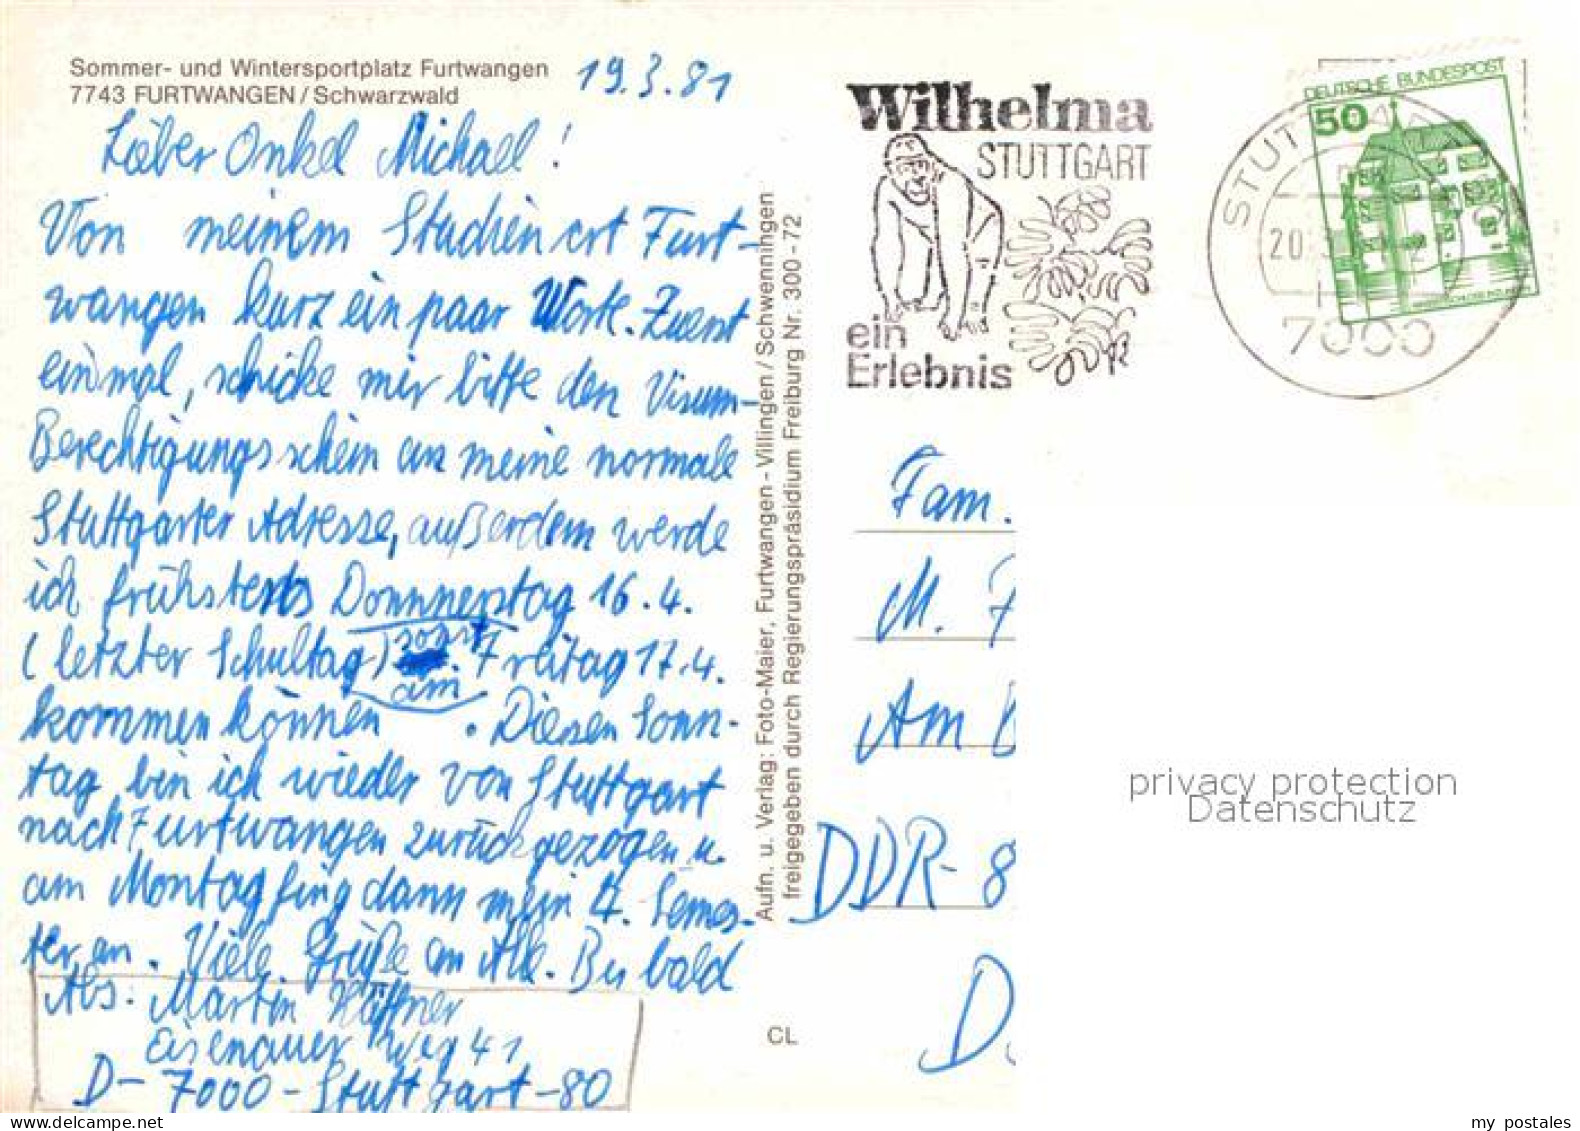 Sommer- und Wintersportplatz Furtwangen
7743 FURTWANGEN / Schwarzwald
19.3.81
Lieber Onkel Michael!
Von meinem Studienort Furt-
wangen kurz ein paar Worte. Zuerst
einmal, schicke mir bitte den Visum-
Berechtigungsschein an meine normale
Stuttgarter Adresse, außerdem werde
ich frühstens Donnnerstag 16.4.
(letzter Schultag) sonst
am Freitag 17.4.
kommen können. Diesen Sonn-
tag bin ich wieder von Stuttgart
nach Furtwangen zurückgezogen u.
am Montag fing dann mein 4. Semes-
ter an. Viele Grüße an Alle. Bis bald
Abs: Martin
Eisenauer Weg 41
D-7000-Stuttgart-80
Aufn. u. Verlag: Foto-Maier, Furtwangen - Villingen / Schwenningen
freigegeben durch Regierungspräsidium Freiburg Nr. 300 - 72
CL
Wilhelma
STUTTGART
ein
Erlebnis
DEUTSCHE BUNDESPOST
50
STUTT
20.
7000
Fam.
M.
Am
DDR-8
D
privacy protection
Datenschutz
www.delcampe.net
my_postales